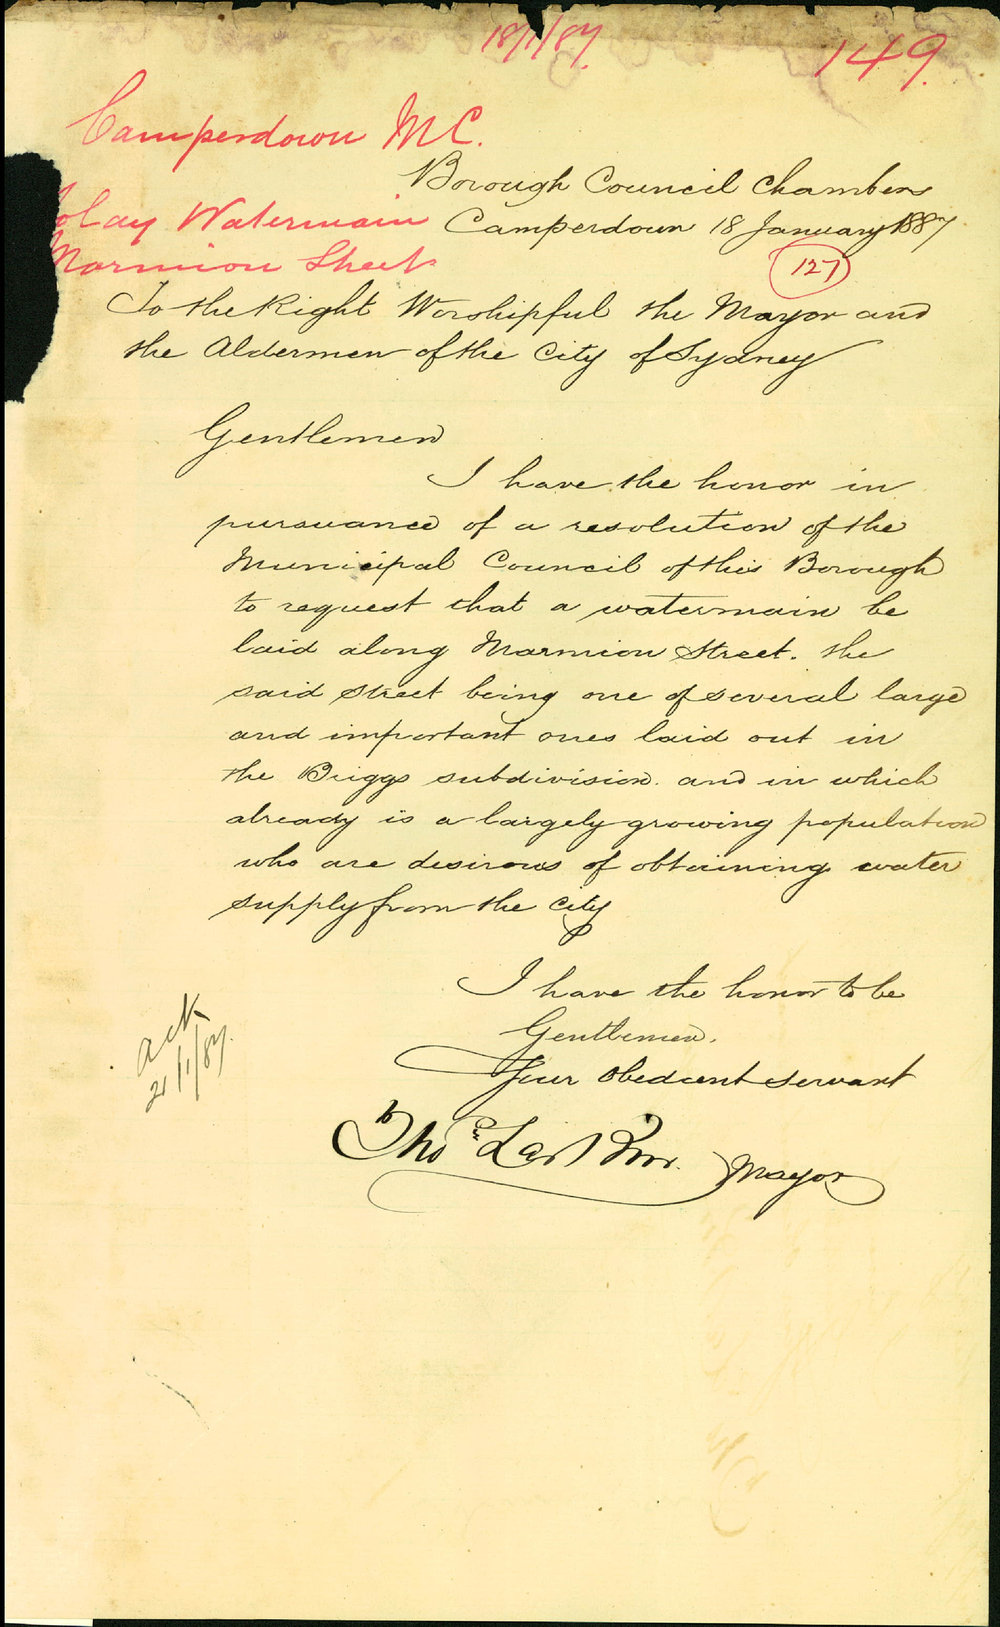 18/1/87.
149.
Camperdown M C.
Borough Council Chambers
lay Watermain
Camperdown 18 January 1887.
Marmion Street
127
To the Right Worshipful the Mayor and
the Aldermen of the City of Sydney
Gentlemen
I have the honor in
pursuance of a resolution of the
Municipal Council of this Borough
to request that a watermain be
laid along Marmion Street. the
said street being one of several large
and important ones laid out in
the Briggs subdivision. and in which
already is a largely growing population
who are desirous of obtaining water
supply from the city
I have the honor to be
Gentlemen.
Your obedient servant
Ack
21/1/87.
Thos
Mayor